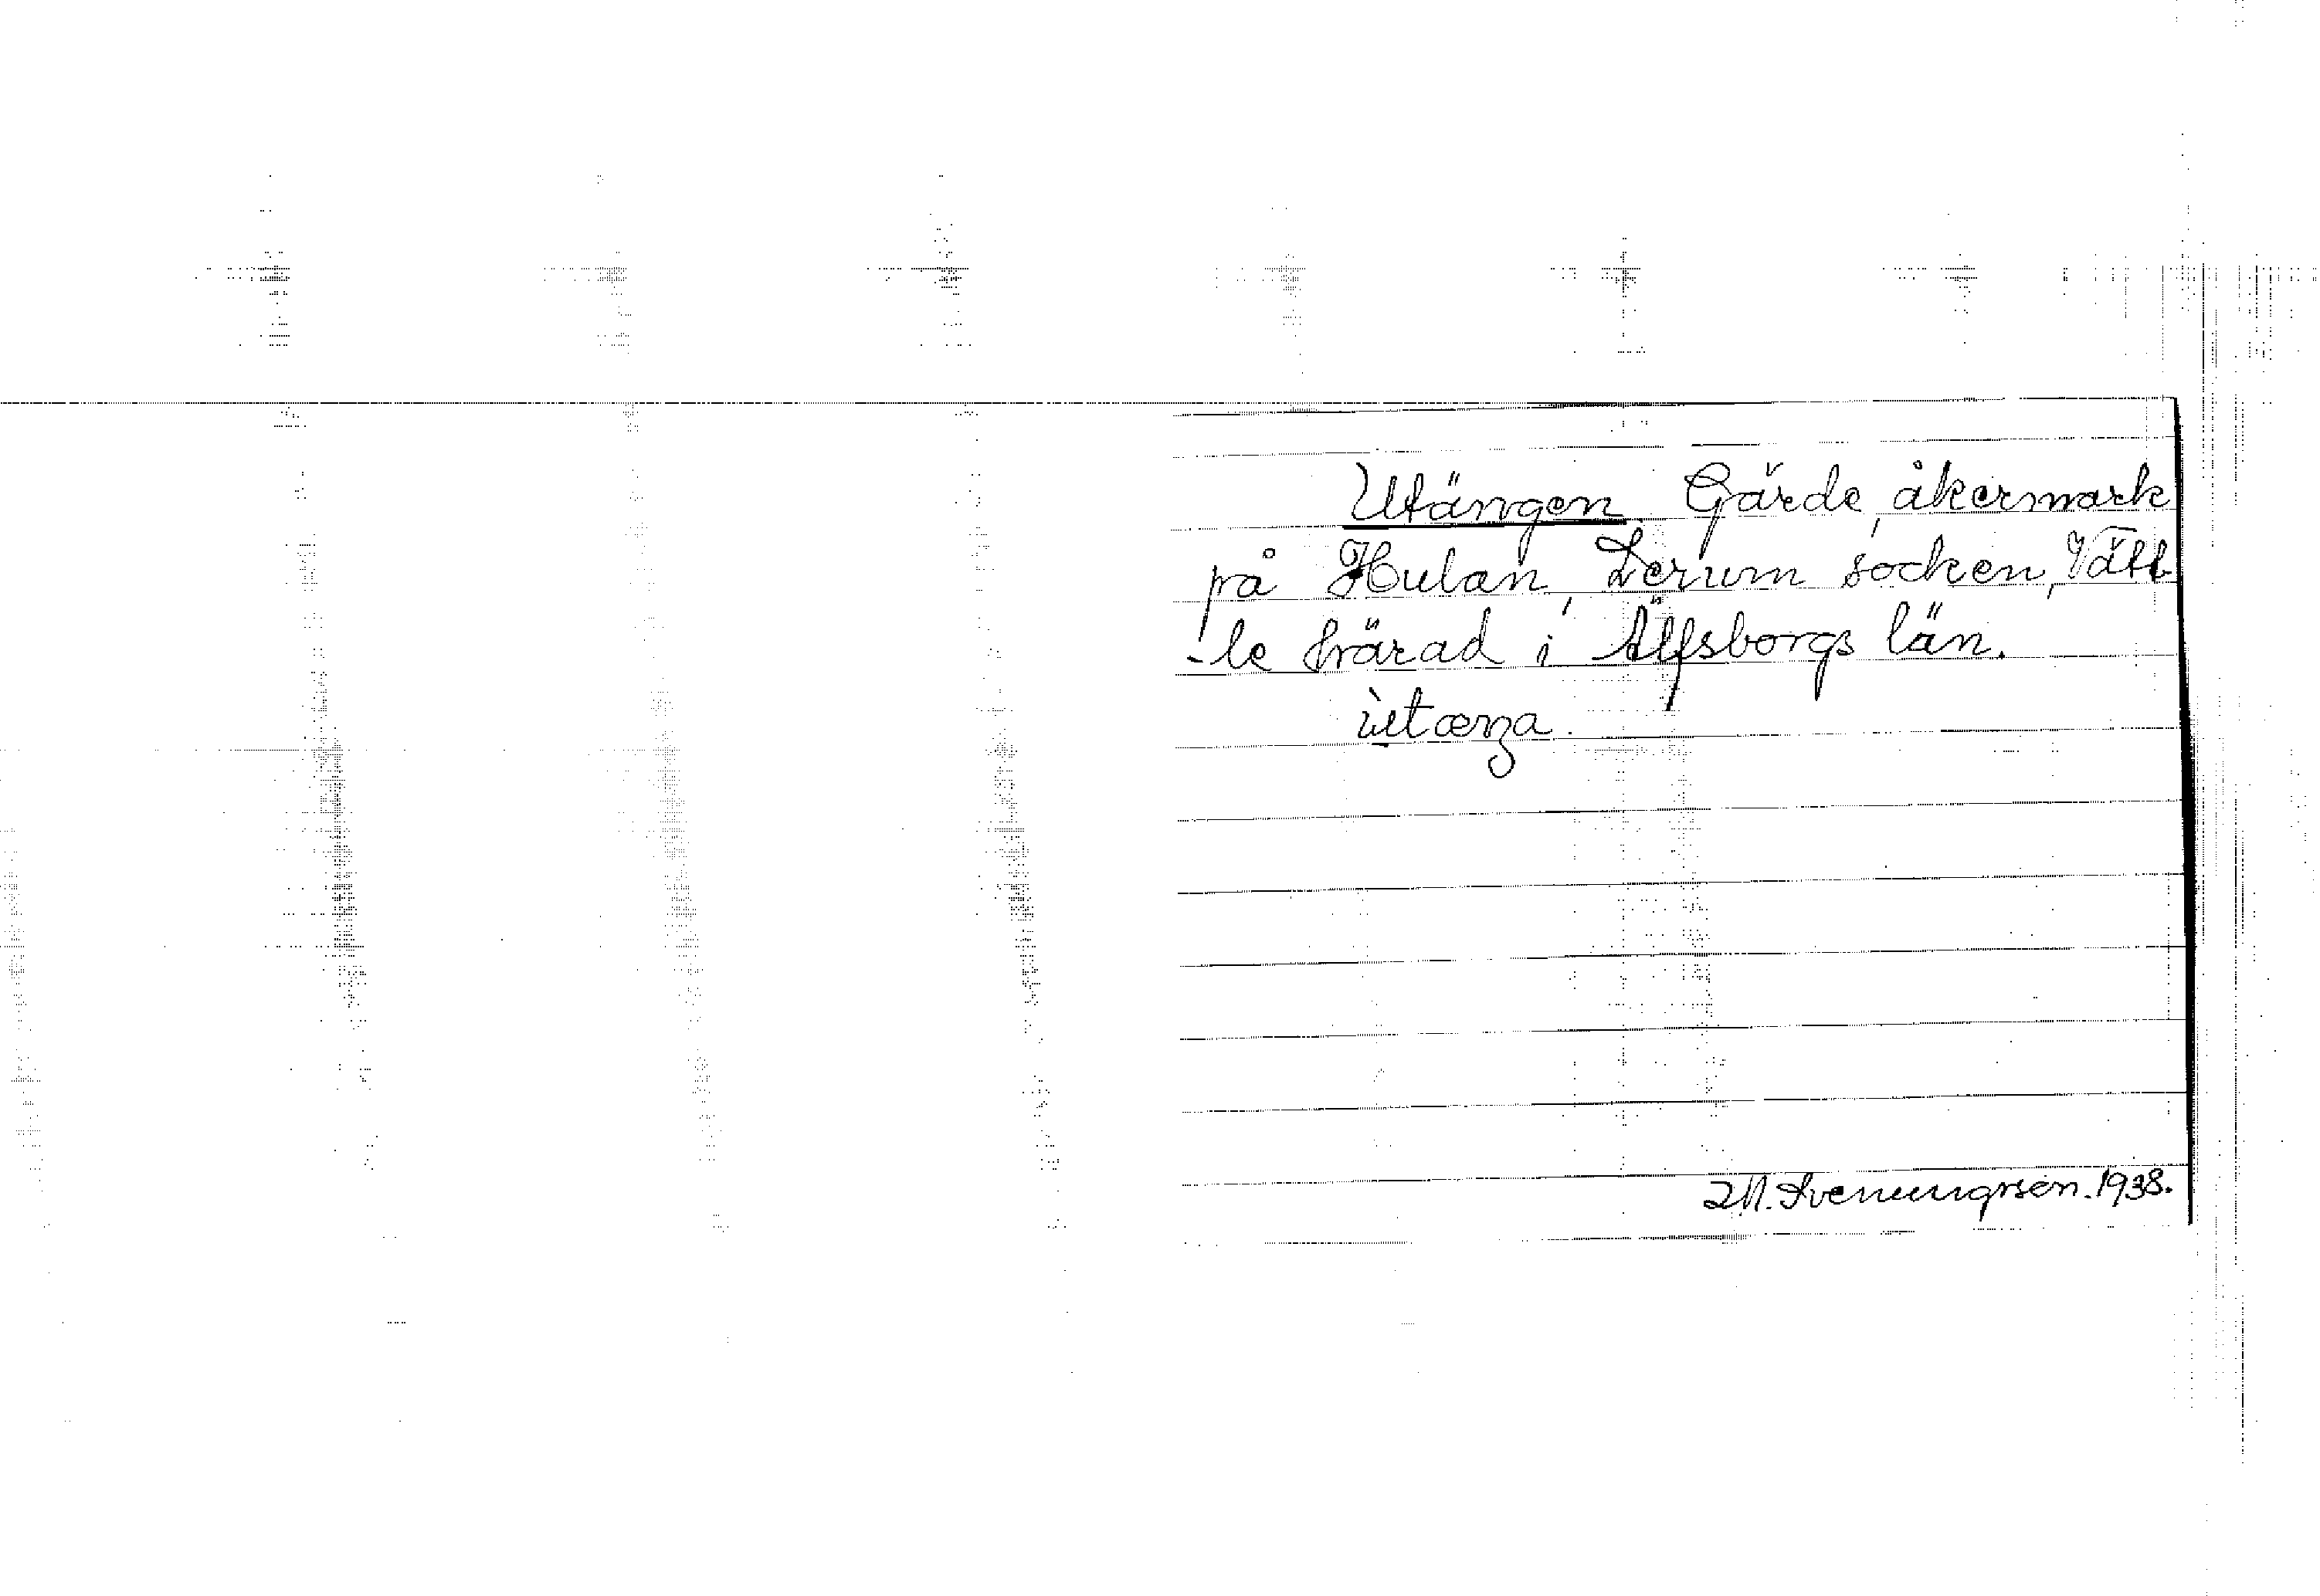 Utängen. Gärde, åkermark
på Hulan, Lerum socken, Vätt
-le härad i Älfsborgs län.
ùtænga.
M. Svenungsson. 1938.